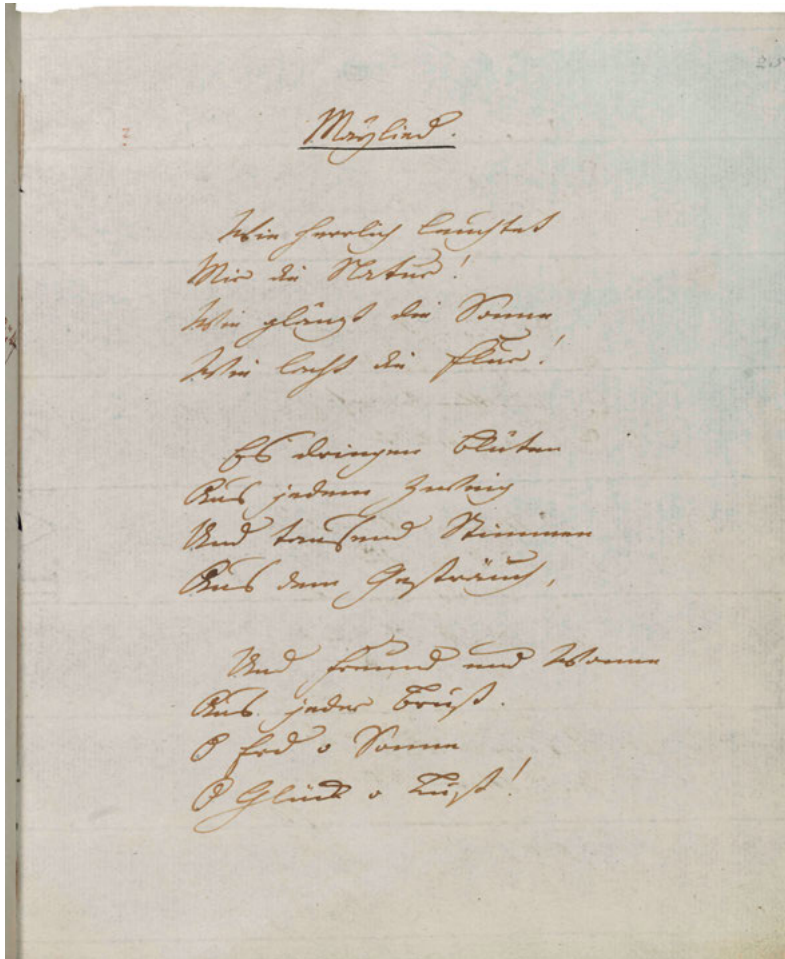 Maylied.
Wie herrlich leuchtet
Mir die Natur!
Wie glänzt die Sonne
Wie lacht die Flur!
Es dringen Blüten
Aus jedem Zweig
Und tausend Stimmen
Aus dem Gesträuch,
Und Freud und Wonne
Aus jeder Brust.
O Erd o Sonne
O Glück o Lust!